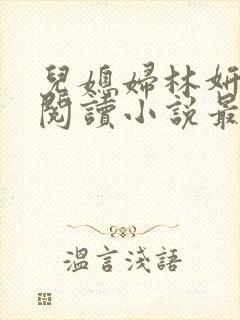 兒媳婦林妍
閱讀小說最
溫言淺語